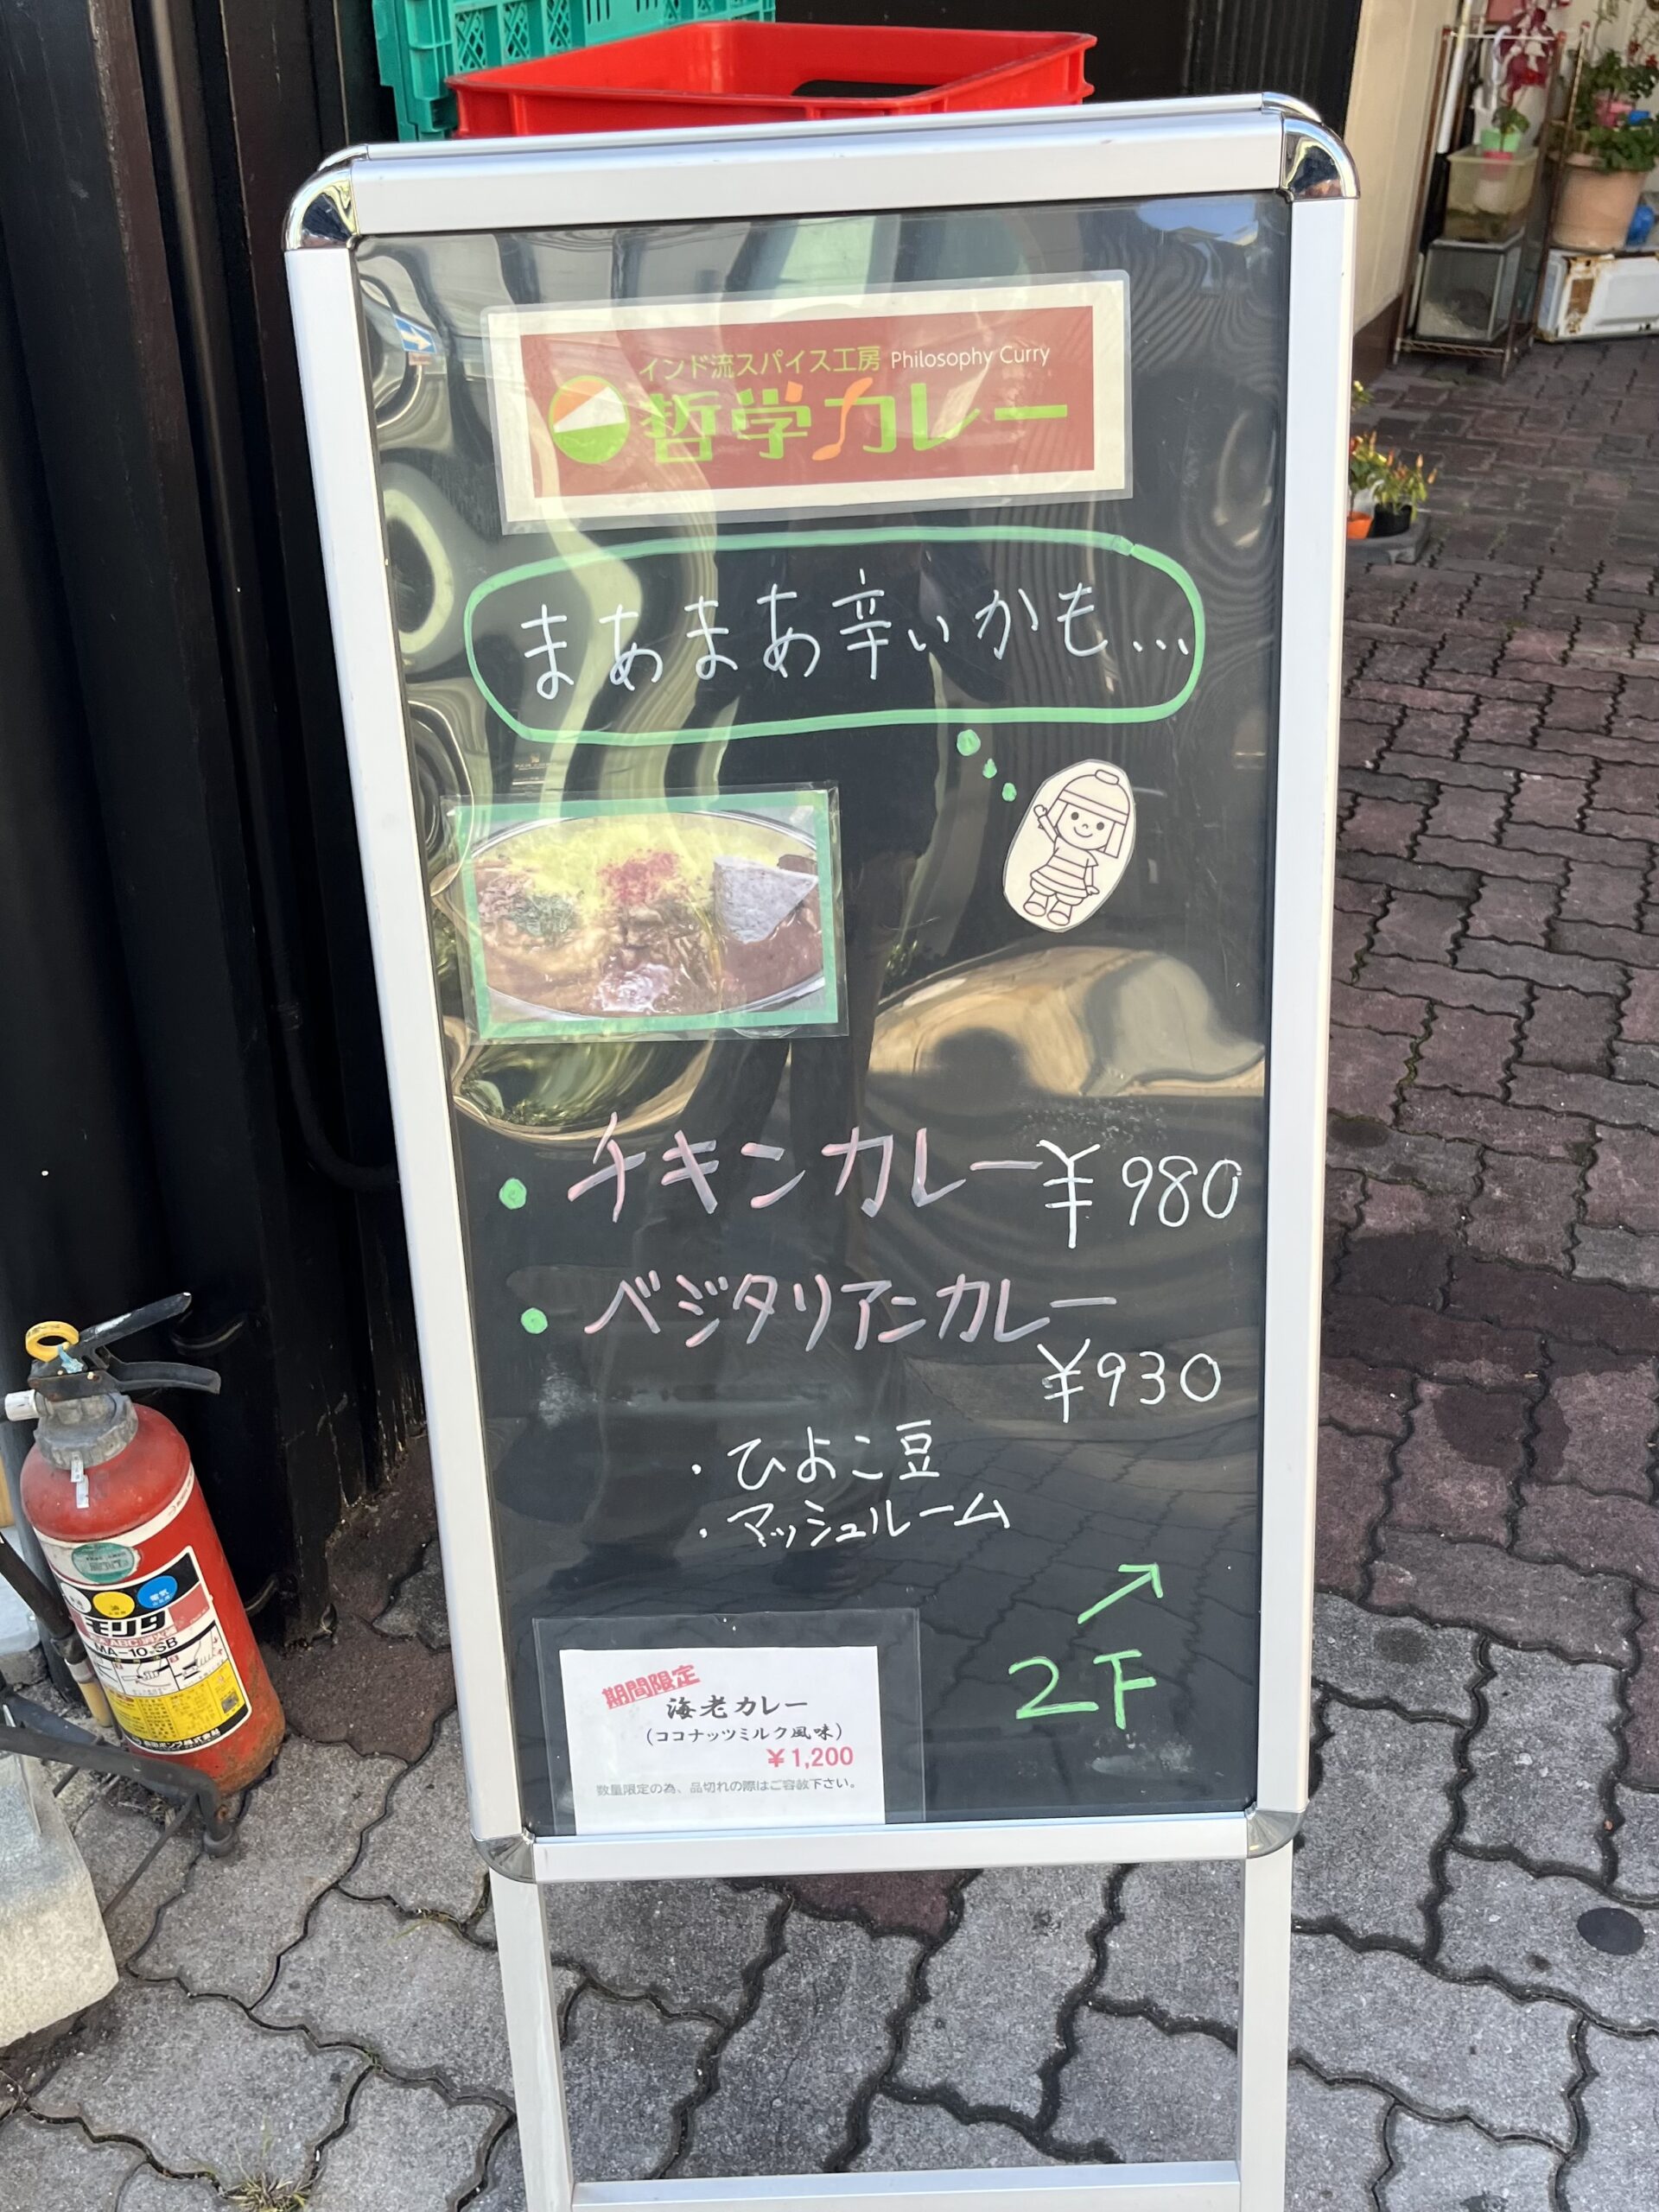 インド流スパイス工房 Philosophy Curry
哲学カレー
まあまあ辛いかも...
・チキンカレー ¥980
・ベジタリアンカレー
¥930
・ひよこ豆
・マッシュルーム
↗
2F
期間限定
海老カレー
(ココナッツミルク風味)
¥1,200
数量限定の為、品切れの際はご容赦下さい。
電気
モリタ
ABC消火器
MA-10SB